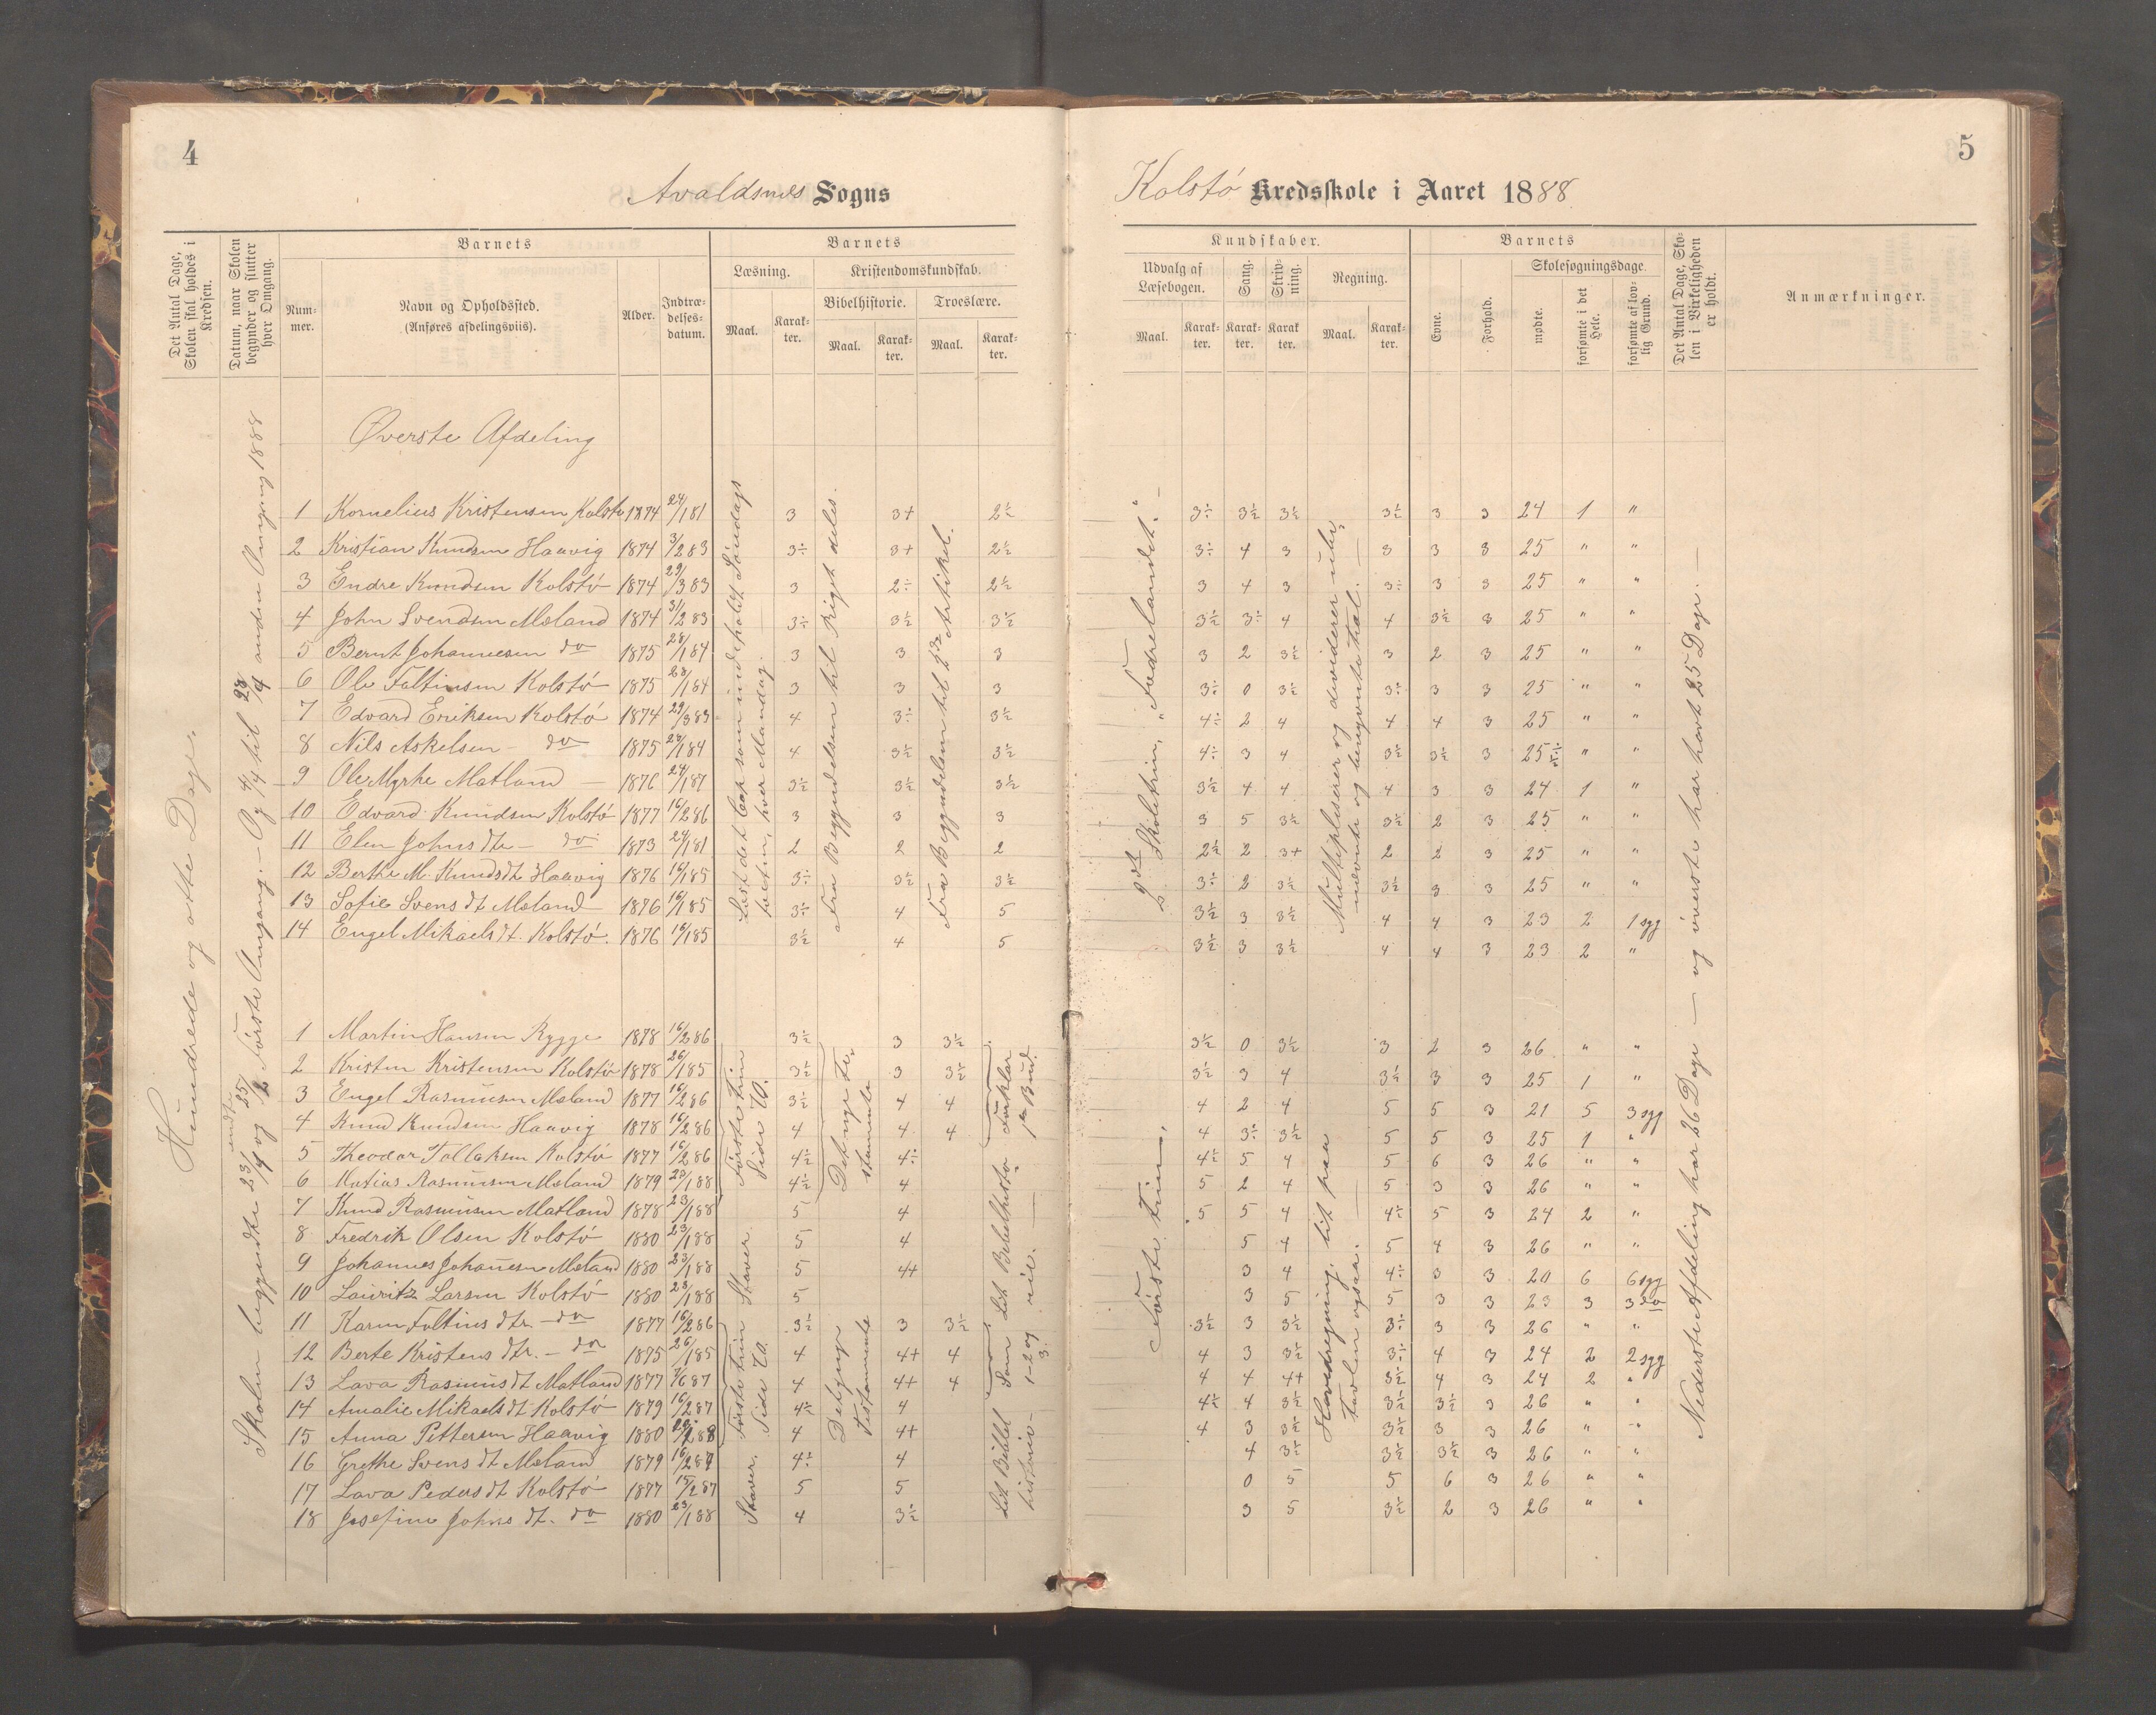 4
Avaldsnes Sogns
Det Antal Dage, Skolen skal holdes i Kredsen.
Datum, naar Skolen begynder og slutter hver Omgang.
Barnets
Nummer.
Navn og Opholdssted.
(Anføres afdelingsviis).
Alder.
Indtrædelsesdatum.
Barnets
Læsning.
Maal.
Karakter.
Kristendomskundskab.
Bibelhistorie.
Maal.
Karakter.
Troeslære.
Maal.
Karakter.
Hundrede og otte Dage.
Skolen begyndte 23/1 og endte 25/2 Første Omgang. – Og 4/4 til 28/4 anden Omgang 1888
Øverste Afdeling
1 Kornelius Kristensen Kolstø 1874 24/1 81 3 3+ 2½
2 Kristian Knudsen Haavig 1874 3/2 83 3÷ 3+ 2½
3 Endre Knudsen Kolstø 1874 29/3 83 3 2÷ 2½
4 John Svendsen Mæland 1874 31/2 83 3÷ 3½ 3½
5 Bernt Johannesen do 1875 28/1 84 3 3 3
6 Ole Faltinsen Kolstø 1875 28/1 84 3 3 3
7 Edvard Eriksen Kolstø 1874 29/3 83 4 3÷ 3½
8 Nils Askelsen – do 1875 28/1 84 4 3½ 3½
9 Ole Myrhe Matland – 1876 24/1 87 3½ 3½ 3½
10 Edvard Knudsen Kolstø 1877 16/2 86 3 3 3
11 Elen Johns dtr – do 1873 24/1 81 2 2 2
12 Berthe M. Knuds dt Haavig 1876 16/1 85 3÷ 3½ 3½
13 Sofie Svens dt Mæland 1876 16/1 85 3÷ 4 5
14 Engel Mikaels dt. Kolstø. 1876 16/1 85 3½ 4 5
Fra Begyndelsen til Riget deles.
Fra Begyndelsen til 3die Artikel.
1 Martin Hansen Rygge 1878 16/2 86 3½ 3 3½
2 Kristen Kristensen Kolstø 1878 26/1 85 3½ 3 3½
3 Engel Rasmusen Mæland 1877 16/2 86 3½ 4 4
4 Knud Knudsen Haavig 1878 16/2 86 4 4 4
5 Theodor Tollaksen Kolstø 1877 16/2 86 4½ 4÷
6 Matias Rasmusen Mæland 1879 23/1 88 4½ 4
7 Knud Rasmusen Matland 1878 23/1 88 5 4
8 Fredrik Olsen Kolstø 1880 23/1 88 5 4
9 Johannes Johannesen Mæland 1880 23/1 88 5 4+
10 Lauritz Larsen Kolstø 1880 23/1 88 5
11 Karen Faltins dtr. – do 1877 16/2 86 3½ 3 3½
12 Berte Kristens dtr. – do 1875 26/1 85 4 4+ 4
13 Lava Rasmus dt Matland 1877 7/6 87 4 4+ 4
14 Amalie Mikaels dt Kolstø 1879 16/2 87 4½ 4
15 Anna Pettersen Haavig 1880 4 4+
16 Grethe Svens dt Mæland 1879 16/2 87 4÷ 4
17 Lava Peders dt Kolstø 1877 15/2 87 5 5
18 Josefine Johns dt. do 1880 23/1 88 4 3½
Første Trin Side 70.
Staver
Første Trin Side 70.
Staver.
Det nye Testamente
Det nye Testamente
Forklar. 1ste Bud.
5
Kolstø Kredsskole i Aaret 1888.
Kundskaber.
Udvalg af Læsebogen.
Maal.
Karakter.
Sang.
Karakter.
Skrivning.
Karakter.
Regning.
Maal.
Karakter.
Barnets
Evne.
Forhold.
Skolesøgningsdage.
mødte.
forsømte i det Hele.
forsømte af lovlig Grund.
Det Antal Dage, Skolen i Virkeligheden er holdt.
Anmærkninger.
2det Skoletrin, „Fædrelandet." –
Multipliserer og dividerer ubenævnte og benævnte Tal. –
3÷ 3½ 3½ 3½ 3 3 24 1 "
3÷ 4 3 3 3 3 25 " "
3 4 3 3÷ 3 3 25 " "
3½ 3÷ 4 4 3½ 3 25 " "
3 2 3½ 3 2 3 25 " "
3÷ 0 3½ 3÷ 3 3 25 " "
4÷ 2 4 4 4 3 25 " "
4÷ 3 4 3½ 3½ 3 25 " "
3½ 4 4 4 3 3 24 1 "
3 5 3½ 3½ 2 3 25 " "
2½ 2 3+ 2 2 3 25 " "
3÷ 2 3½ 3½ 3 3 25 " "
3½ 3 3½ 4 4 3 23 2 1 syg
3½ 3 3½ 4 4 3 23 2 "
Første Trin.
Hovedregning. lit paa Tavlen ogsaa. –
3½ 0 3½ 3 2 3 26 " "
3½ 3 4 3½ 3 3 25 1 "
4 2 4 5 5 3 21 5 3 syg
4 3÷ 3½ 5 5 3 25 1 "
4½ 5 4 5 6 3 26 " "
5 2 4 5 3 3 26 " "
5 5 4 4½ 5 3 24 2 "
5 4 5 4 3 26 " "
3 4 4÷ 3 3 20 6 6 syg
3 5 5 3 3 23 3 3 do
3½ 3 3½ 3÷ 3 3 26 " "
4 3 3½ 3÷ 4 3 24 2 2 syg
4 4 4+ 3½ 4 3 24 2 "
4½ 4 3½ 3½ 3½ 3 26 " "
4 3 3½ 3½ 3 3 26 " "
4 3½ 3½ 3½ 3 26 " "
0 5 5 6 3 26 " "
3 5 3½ 2 3 26 " "
Nederste Afdeling har 26 Dage – og øverste har havt 25 Dage. –